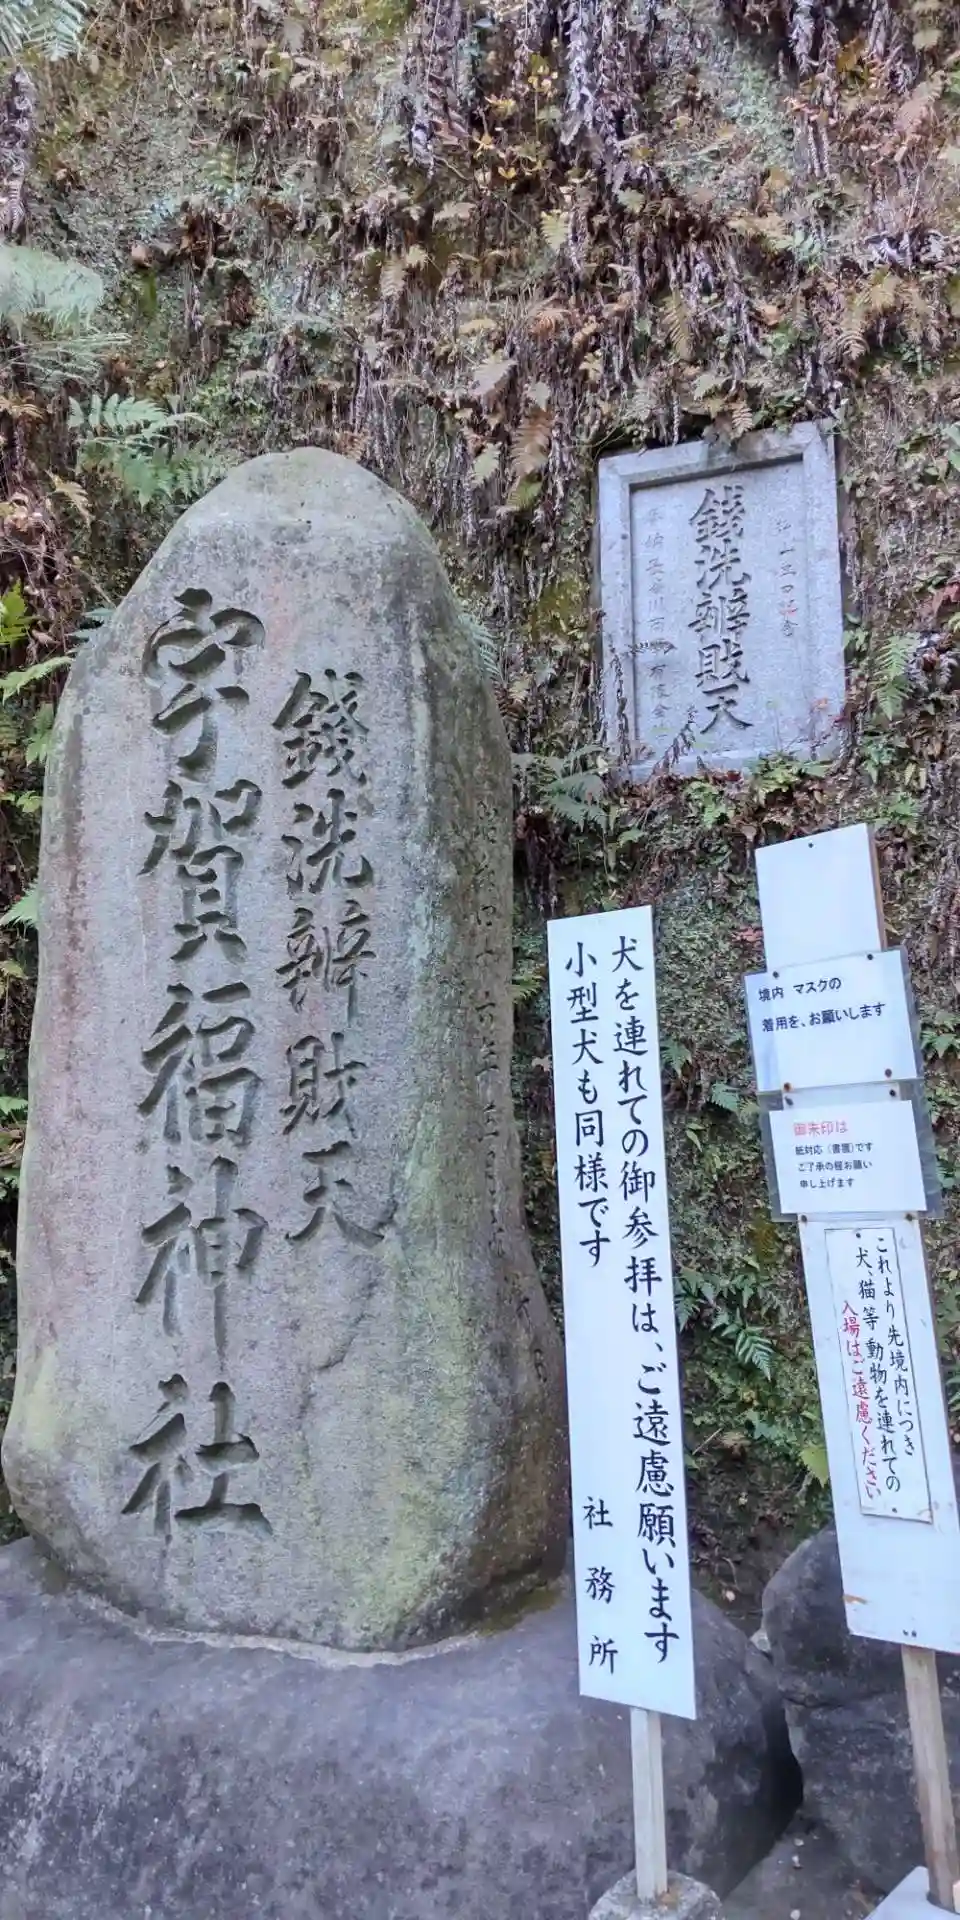 銭洗辨財天
宇賀福神社
銭洗辨財天
犬を連れての御参拝は、ご遠慮願います
小型犬も同様です
社務所
境内 マスクの
着用を、お願いします
御朱印は
紙対応（書置）です
ご了承の程お願い
申し上げます
これより先境内につき
犬、猫等動物を連れての
入場はご遠慮ください